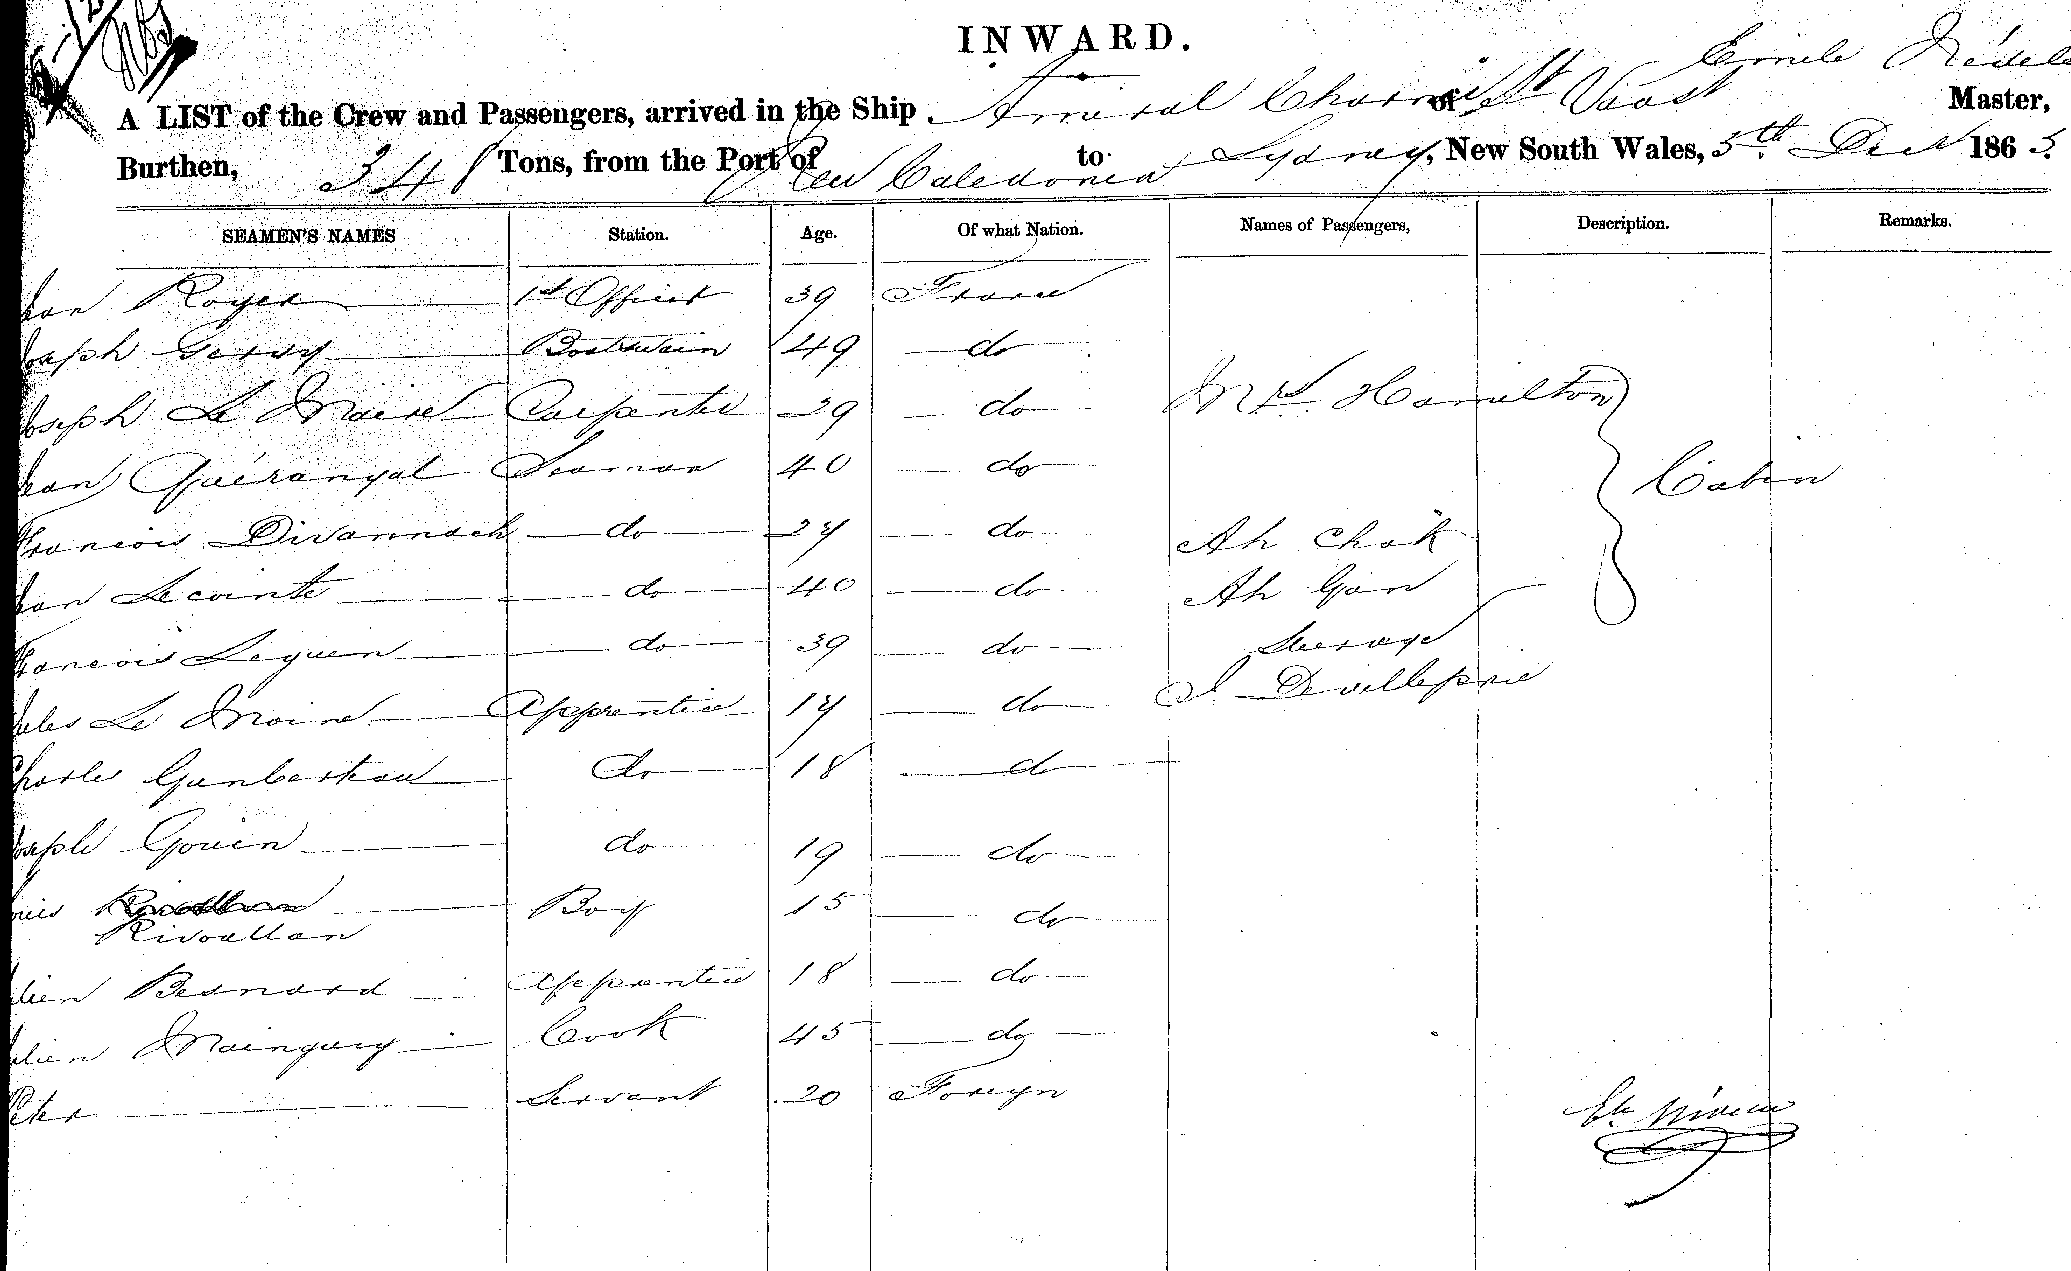 INWARD.
Emile
A LIST of the Crew and Passengers, arrived in the Ship Amiral of St Vaast Master,
Burthen, 348 Tons, from the Port of New Caledonia to Sydney, New South Wales, 5th Dec 1863.
SEAMEN'S NAMES Station. Age. Of what Nation. Names of Passengers, Description. Remarks.
Jean Royer 1st Officer 39 France
Joseph Gervy Boatswain 49 do
Joseph Le Moine Carpenter 29 do Mrs. Hamilton
Jean Seaman 40 do Cabin
Francois Divannach do 27 do Ah Chok
Jean Lecointe do 40 do Ah Gan
Francois Leguen do 39 do Steerage
Jules Le Moine Apprentice 17 do J Devilleprie
Charles do 18 do
Joseph Gouin do 19 do
Boy 15 do
Rivoallan
Julien Besnard Apprentice 18 do
Julien Mainguy Cook 45 do
Peter Servant 20 Foreign